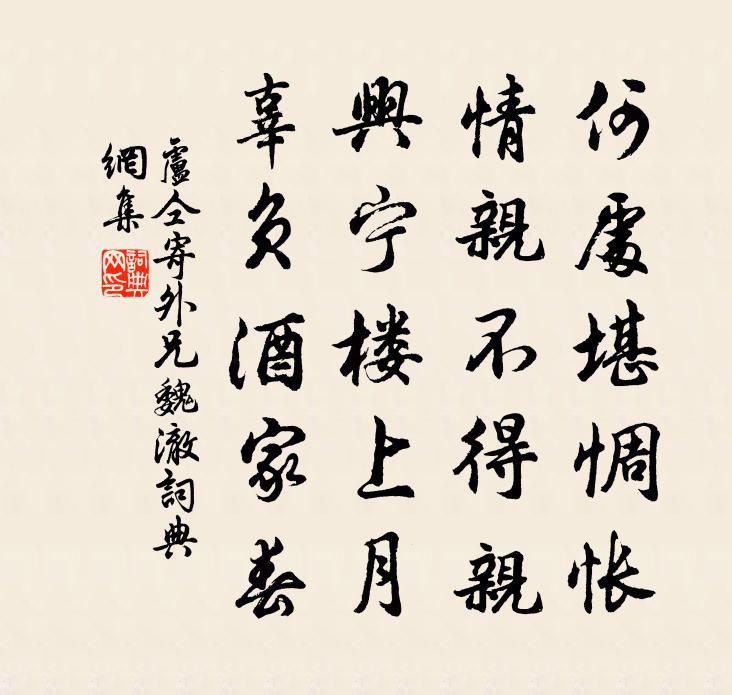 何處堪惆怅
情親不得親
興宁楼上月
辜负酒家春
盧仝寄外兄魏澈詞典
網集
詞典网印